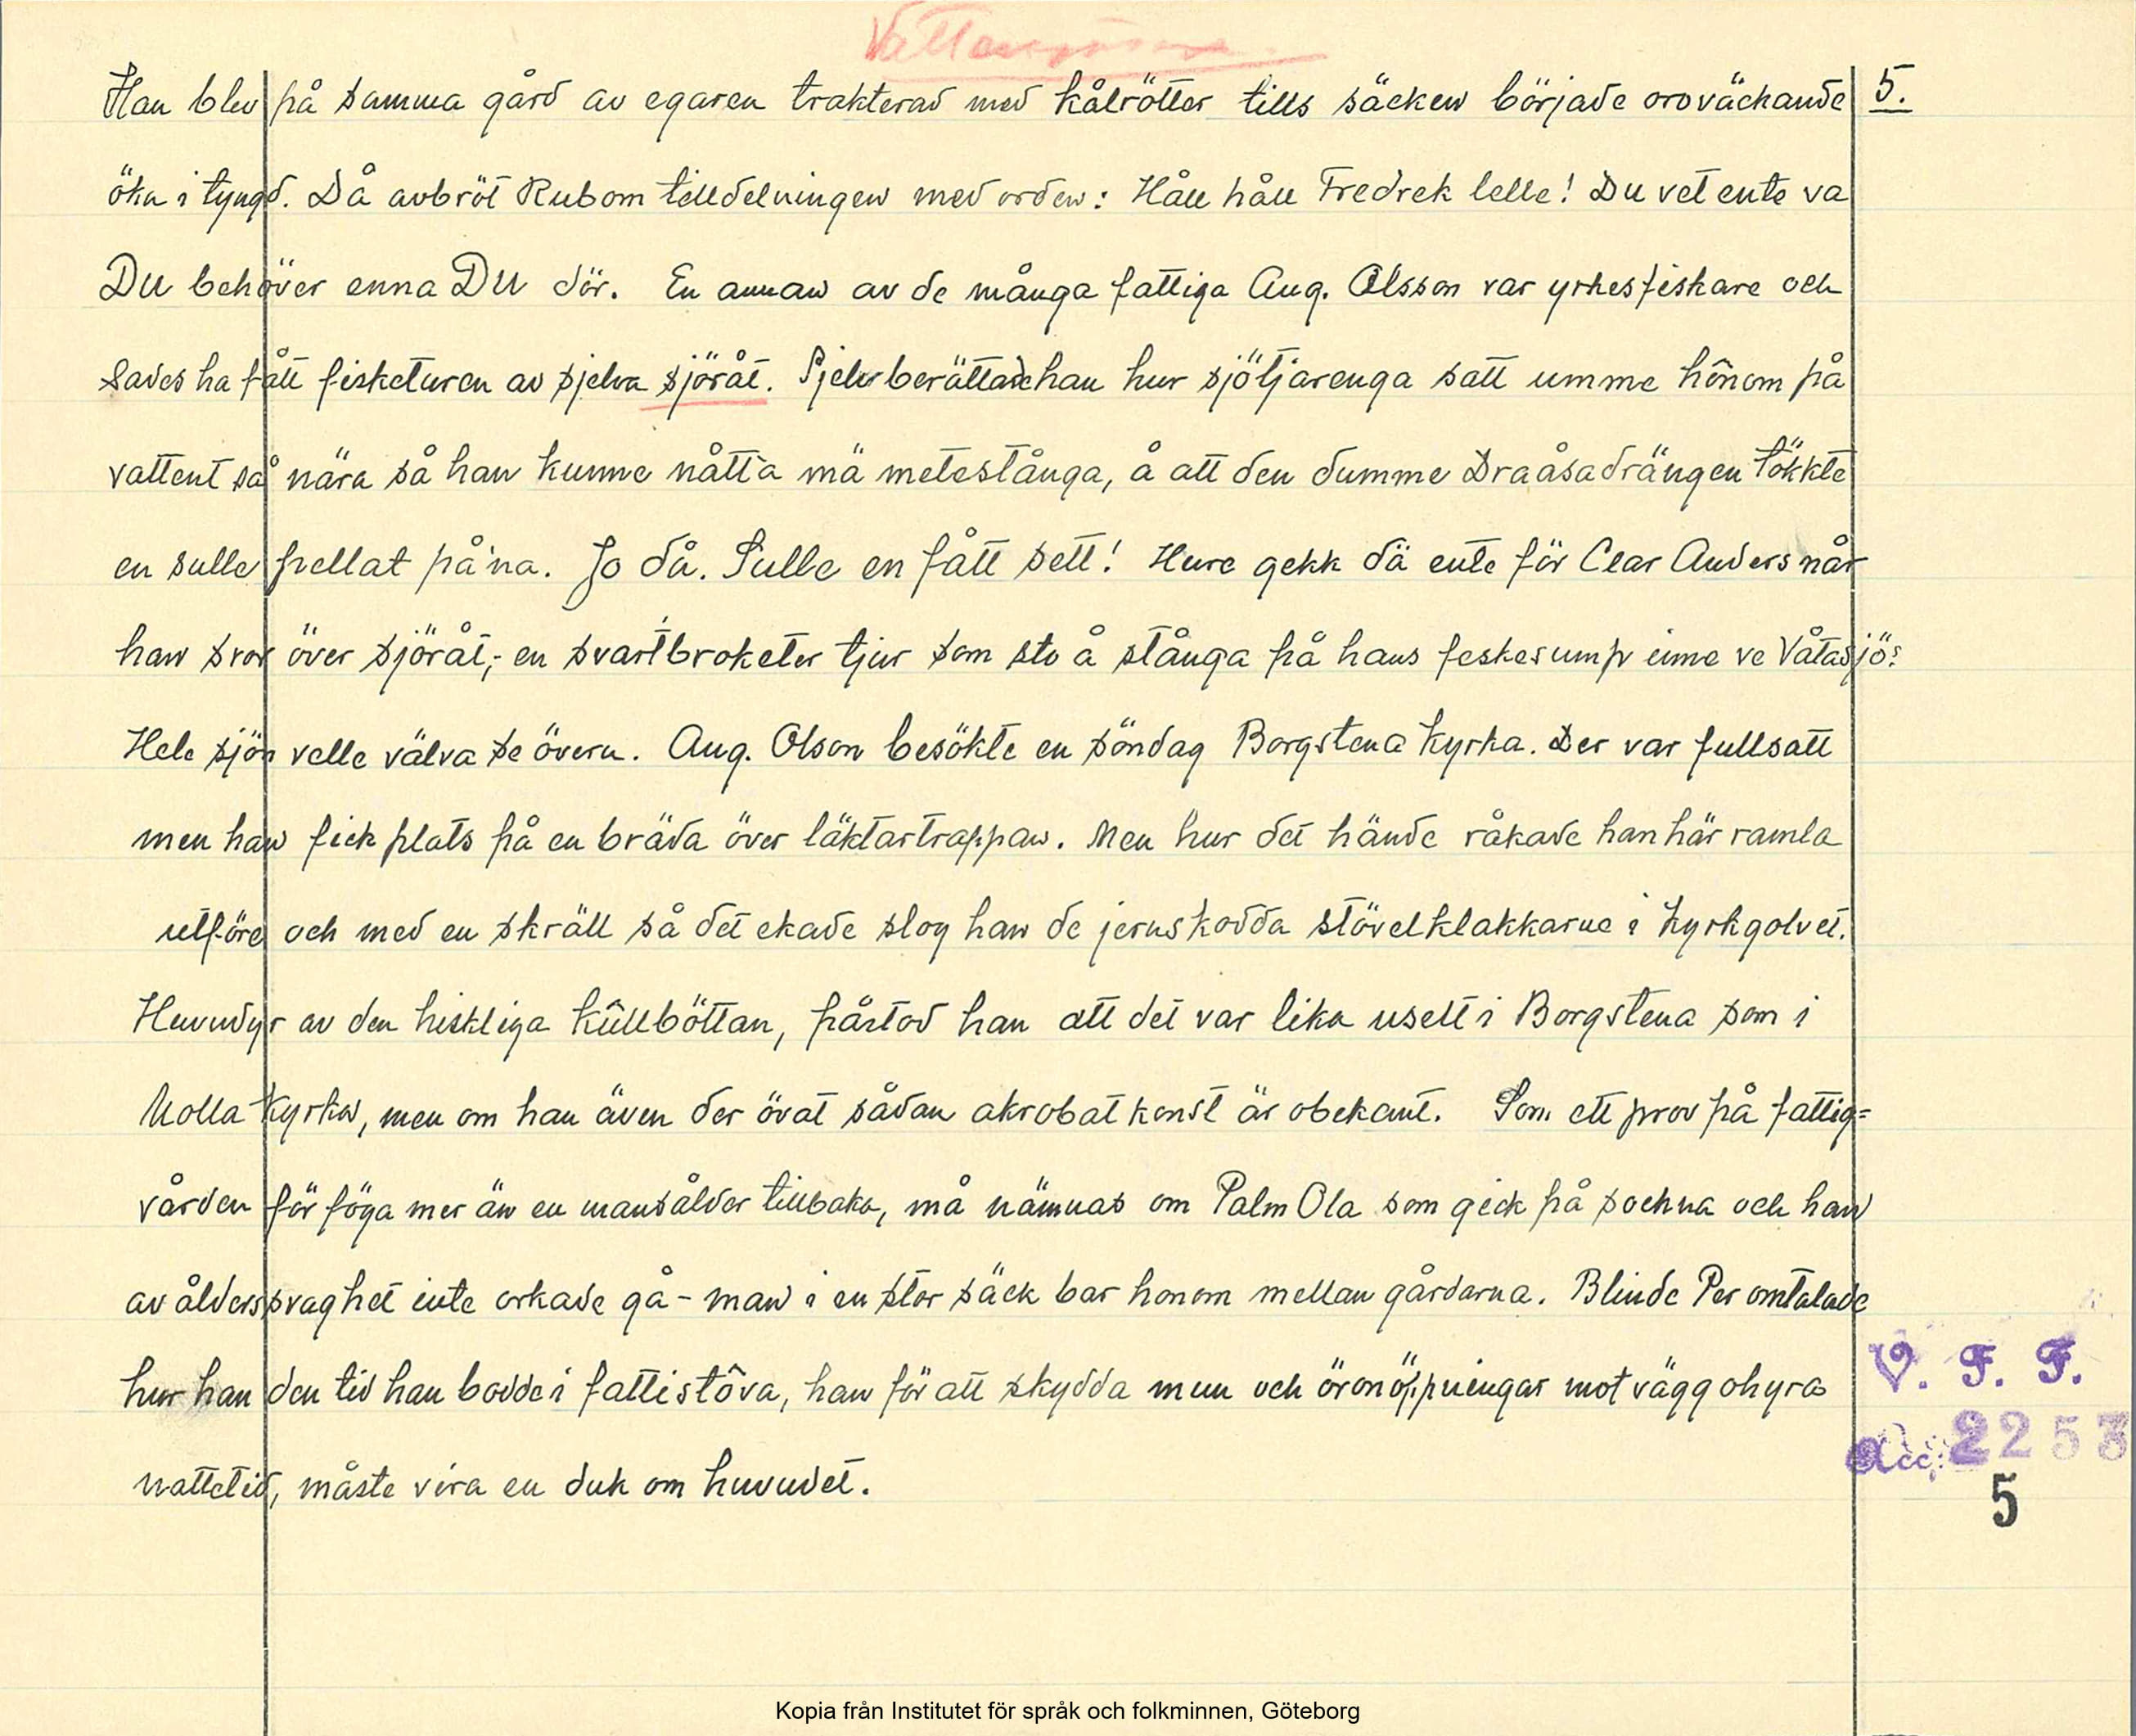 Han blev på samma gård av egaren trakterad med kålrötter tills säcken började oroväckande
5.
öka i tyngd. Då avbröt Rubom tilldelningen med orden: Håll håll Fredrek lelle! Du vet ente va
Du behöver enna DU dör. En annan av de många fattiga Aug. Olsson var yrkesfiskare och
sades ha fått fisketuren av sjelva sjöråt. Sjelv berättade han hur sjötjärenga satt umme hônom på
vattent så nära så han kunne nått'a mä metestånga, å att den dumme Draåsadrängen tökkte
en sulle frellat på'na. Jo då. Sulle en fått sett! Hure gekk dä ente för Clar Anders når
han svor över sjöråt,- en svartbroketer tjur som sto å stånga på hans feskesump inne ve Våtasjö?
Hele sjön velle välva se övern. Aug. Olson besökte en söndag Borgstena Kyrka. Der var fullsatt
men han fick plats på en bräda över läktartrappan. Men hur det hände råkade han här ramla
utföre och med en skräll så det ekade slog han de jernskodda stövelklakkarne i Kyrkgolvet.
Huvudyr av den hiskliga kûllböttan, påstod han att det var lika uselt i Borgstena som i
Molla Kyrka, men om han även der övat sådan akrobatkonst är obekant. Som ett prov på fattig=
vården för föga mer än en mansålder tillbaka, må nämnas om Palm Ola som gick på sockna och han
av ålderssvaghet inte orkade gå - man i en stor säck bar honom mellan gårdarna. Blinde Per omtalade
hur han den tid han bodde i fattistôva, han för att skydda mun och öronöppningar mot väggohyra
nattetid, måste vira en duk om huvudet.
V. F. F.
Acc: 2253
5
Kopia från Institutet för språk och folkminnen, Göteborg